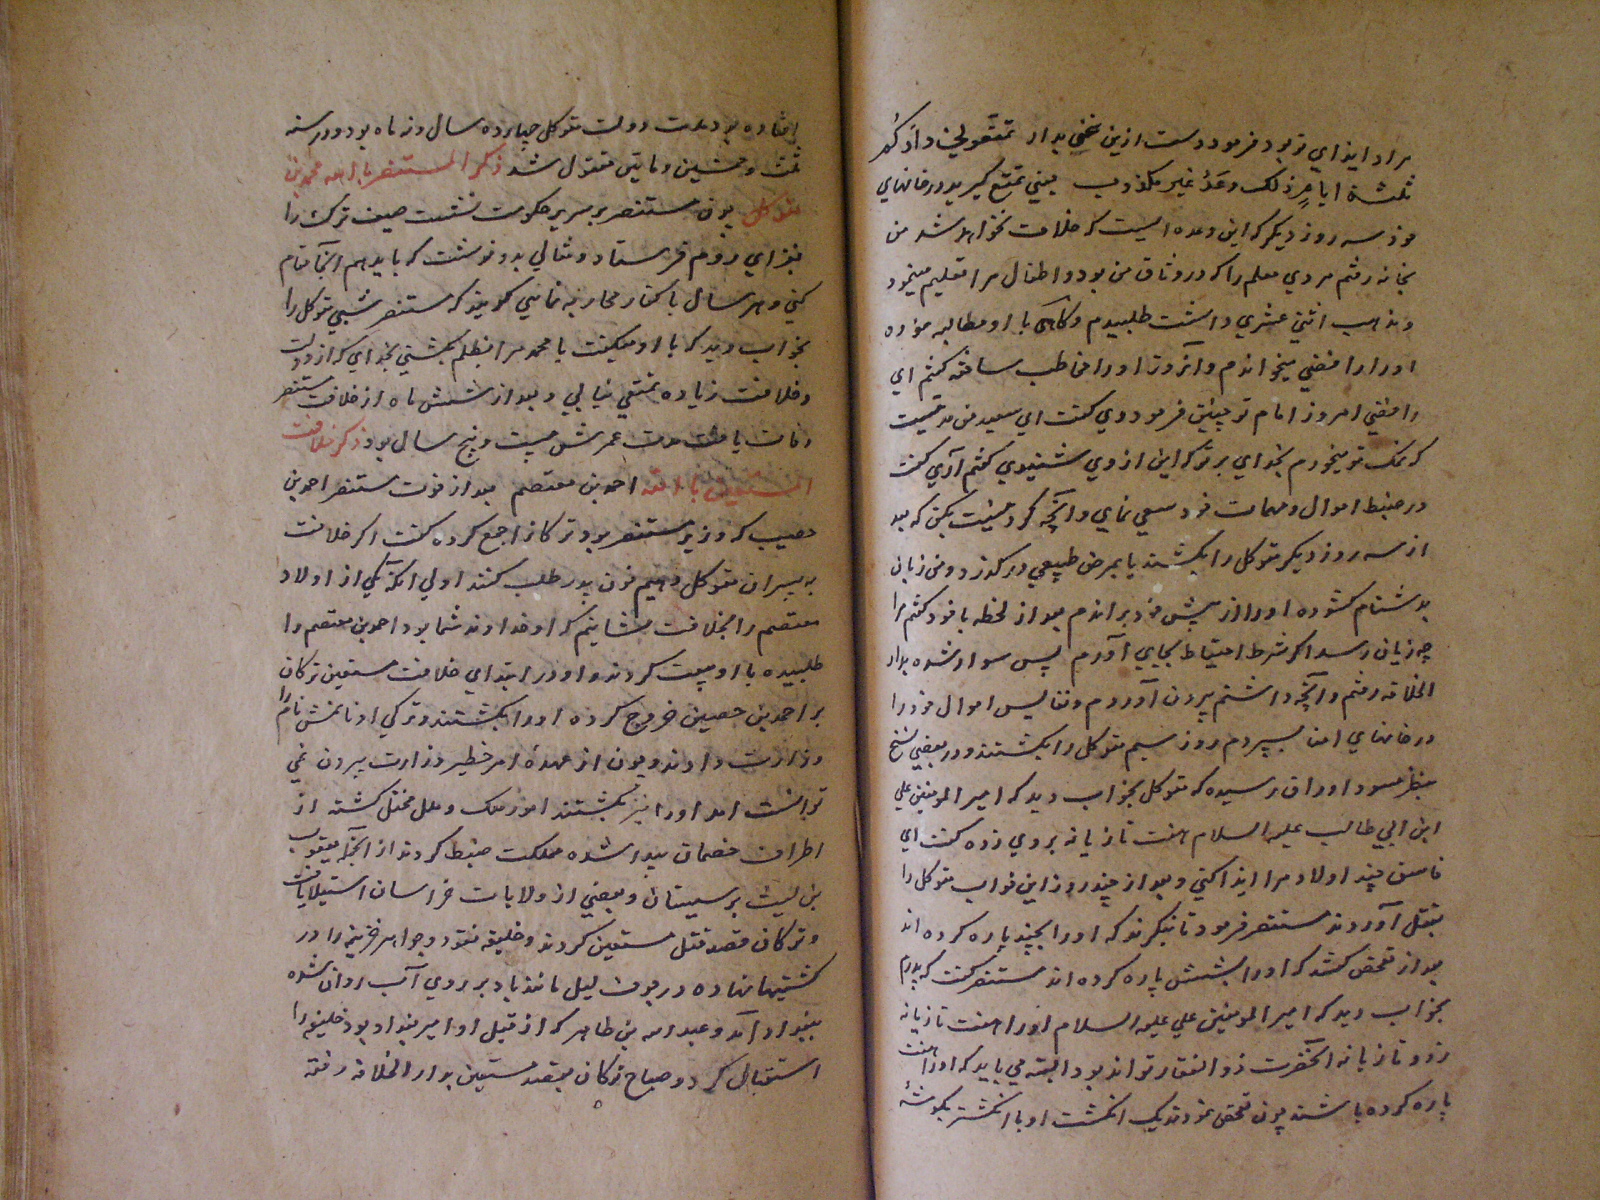 مراد ایذای تو بود فرمود دست ازین سخن بدار تمتعوا فی دارکم
ثلثة ایام ذلک وعد غیر مکذوب یعنی تمتع گیرید در خانهای
خود سه روز دیگر که این وعده ایست که خلاف نخواهد شد من
بخانه رفتم مردی معلم را که در وثاق من بود و اطفال مرا تعلیم مینمود
و مذهب اثنی عشری داشت طلبیدم و گاهی با او مطالبه
او را رافضی میخواندم و آنروز او را مخاطب ساخته گفتم ای
رافضی امروز امام تو چنین فرمود وی گفت ای سعید من
که نمک تو میخورم بخدای بر تو که این از وی شنیدی گفتم آری گفت
در ضبط اموال و مهمات خود سعی نمای و آنچه بکن که بعد
از سه روز دیگر متوکل را بکشند یا بمرض طبیعی درگذرد و من زبان
بدشنام گشوده او را از پیش خود براندم بعد از لحظه با خود گفتم مرا
چه زیان رسد اگر شرط احتیاط بجای آورم پس سوار شده بدار
الخلافه رفتم و آنچه داشتم بیرون آوردم و نفایس اموال خود را
در خانهای امنا بسپردم روز سیم متوکل را بکشتند و در بعضی نسخ
بنظر مسود اوراق رسیده که متوکل بخواب دید که امیر المومنین علی
ابن ابی طالب علیه السلام هفت تازیانه بر وی زده گفت ای
فاسق چند اولاد مرا ایذا کنی و بعد از چند روز این خواب متوکل را
بقتل آوردند مستنصر فرمود تا بنگرند که او را بچند پاره کرده اند
بعد از تفحص گفتند که او را بشش پاره کرده اند مستنصر گفت که پدرم
بخواب دید که امیر المومنین علی علیه السلام او را هفت تازیانه
زد و تازیانه آنحضرت ذو الفقار تواند بود البته می باید که او را هفت
پاره کرده باشند چون تفحص نمودند یک انگشت او با انگشتر بگوشهٔ
افتاده بود مدت دولت متوکل چهارده سال و نه ماه بود و در سنه
ثلث و خمسین و ماتین مقتول شد ذکر المستنصر بالله محمد بن
متوکل چون مستنصر بر سریر حکومت نشست صیف ترک را
بغزای روم فرستاد و مثالی بدو نوشت که باید هم آنجا مقام
کنی و هر سال با کفار محاربه نمایی گویند که مستنصر شبی متوکل را
بخواب دید که با او میگفت یا محمد مرا بظلم بکشتی بخدای که از دولت
و خلافت زیاده تمتعی نیابی و بعد از شش ماه از خلافت مستنصر
وفات یافت مدت عمرش بیست و پنج سال بود ذکر خلافت
المستعین بالله احمد بن معتصم بعد از فوت مستنصر احمد بن
خصیب که وزیر مستنصر بود ترکانرا جمع کرده گفت اگر خلافت
به پسران متوکل دهیم خون پدر طلب کنند اولی آنکه یکی از اولاد
معتصم را بخلافت بنشانیم که او خداوند شما بود احمد بن معتصم را
طلبیده با او بیعت کردند و او در ابتدای خلافت مستعین ترکان
بر احمد بن خصیب خروج کرده او را بکشتند و ترکی اوتامش نام را
وزارت دادند و چون از عهدهٔ امر خطیر وزارت بیرون نمی
توانست آمد او را نیز بکشتند امور ملک و ملل مختل گشته از
اطراف خصمان پیدا شده مملکت ضبط کردند از آنجمله یعقوب
بن لیث بر سیستان و بعضی از ولایات خراسان استیلا یافت
و ترکان قصد قتل مستعین کردند و خلیفه نقود و جواهر خزینه را در
کشتیها نهاده در جوف لیل مانند باد بر روی آب روان شده
ببغداد آمد و عبد الله بن طاهر که از قبل او امیر بغداد بود خلیفه را
استقبال کرد و صباح ترکان بقصد مستعین بدار الخلافه رفته